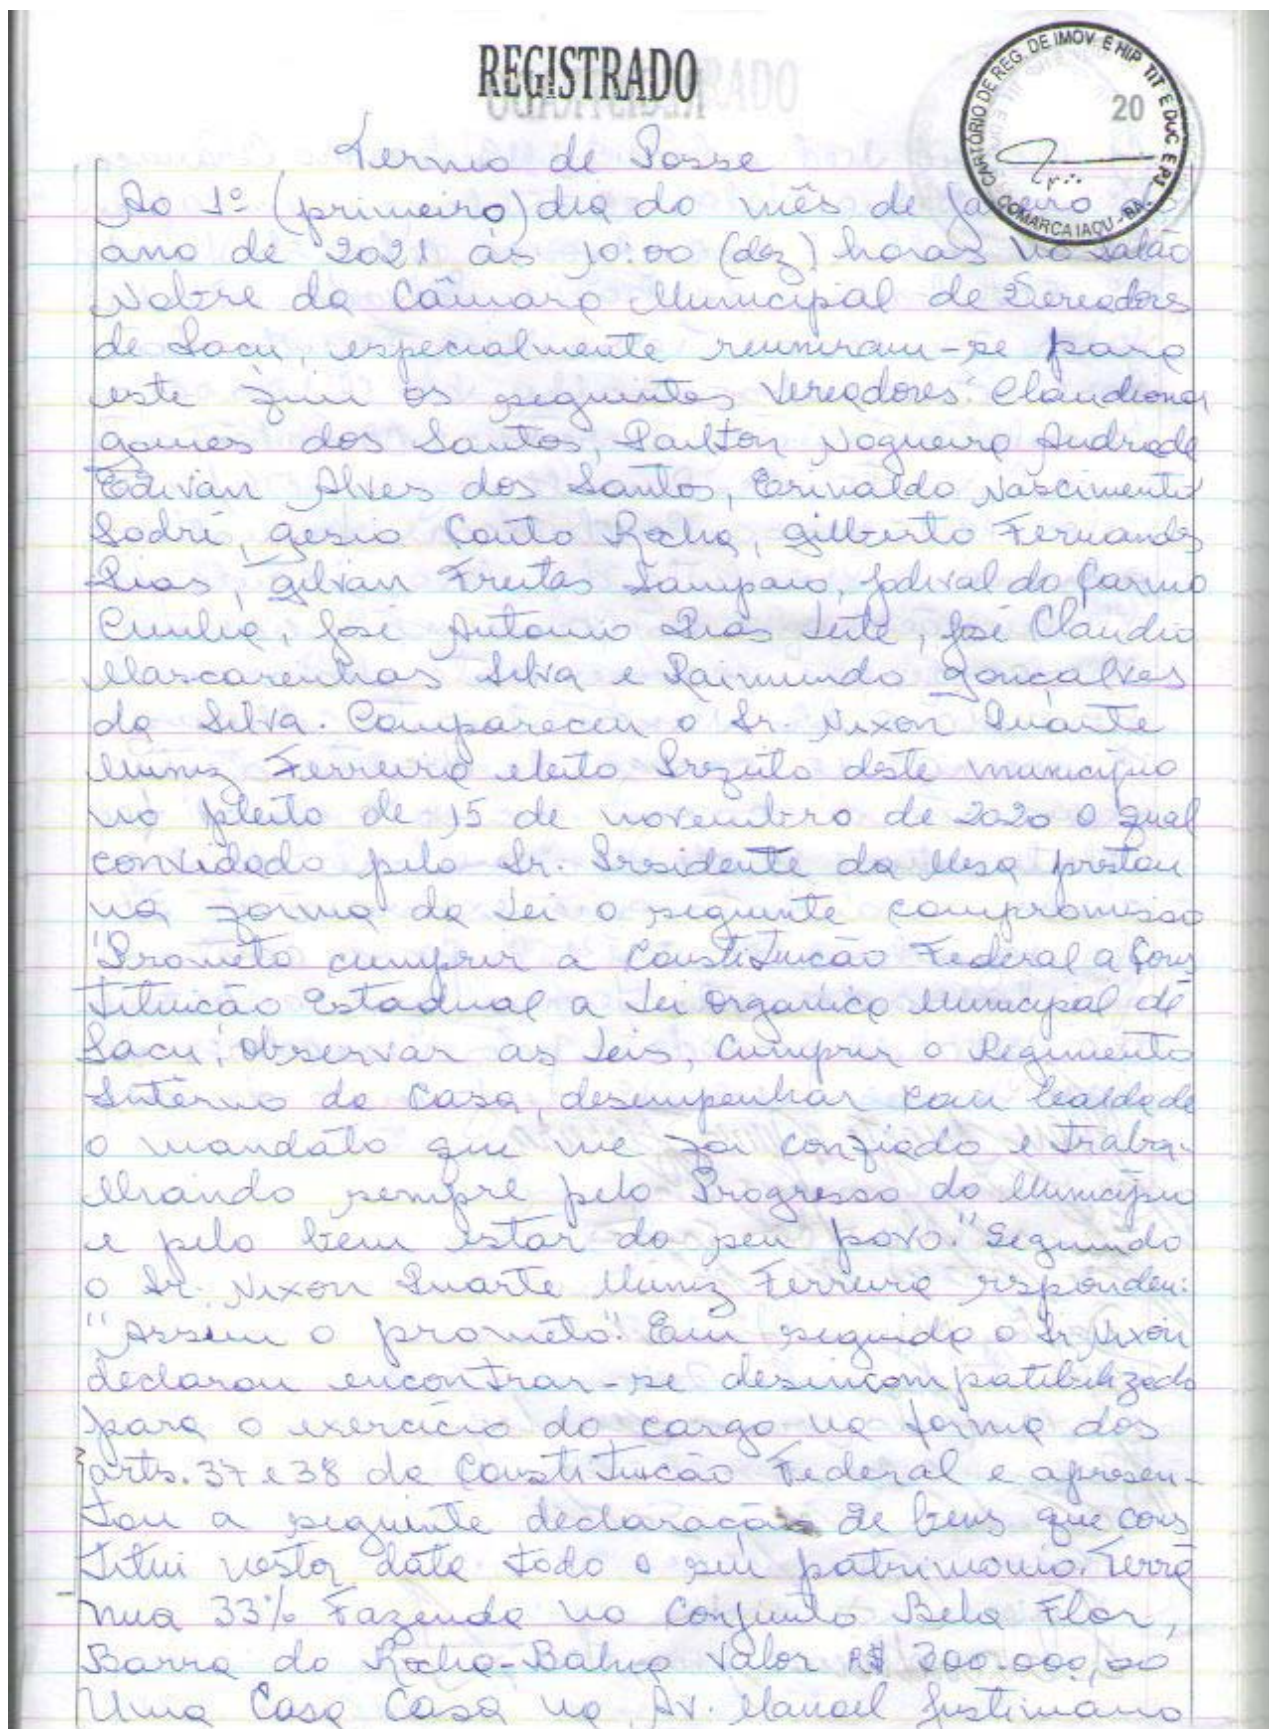 REGISTRADO
CARTÓRIO DE REG. DE IMÓV. E HIP. TIT E DOC E P.J.
COMARCA IAÇU - BA
20
Termo de Posse
Ao 1º (primeiro) dia do mês de Janeiro
ano de 2021 às 10:00 (dez) horas no Salão
Nobre da Câmara Municipal de Vereadores
de Iaçu, especialmente reuniram-se para
este fim os seguintes Vereadores: Claudionor
Gomes dos Santos, Dailton Nogueira Andrade
Edivan Alves dos Santos, Erinaldo Nascimento
Sodré, Gesio Couto Rocha, Gilberto Fernandes
Dias, Gilvan Freitas Sampaio, Jodival do Carmo
Cunha, José Antonio Dias Leite, José Claudio
Mascarenhas Silva e Raimundo Gonçalves
da Silva. Compareceu o Sr. Nixon Duarte
Muniz Ferreira eleito Prefeito deste município
no pleito de 15 de novembro de 2020 o qual
convidado pelo Sr. Presidente da Mesa prestou
na forma da Lei o seguinte compromisso
"Prometo cumprir a Constituicão Federal a Cons
tituicão Estadual a Lei Organica Municipal de
Iaçu, observar as Leis, cumprir o Regimento
Interno da Casa, desempenhar com lealdade
o mandato que me foi confiado e traba-
lhando sempre pelo Progresso do Municipio
e pelo bem estar do seu povo." Segundo
o Sr. Nixon Duarte Muniz Ferreira respondeu:
"Assim o prometo". Em seguida o Sr Nixon
declarou encontrar-se desincompatibilizado
para o exercício do cargo na forma dos
arts. 37 e 38 da Constituicão Federal e apresen-
tou a seguinte declaracão de bens que cons
titui nesta data todo o seu patrimonio. Terra
nua 33% Fazenda no Conjunto Bela Flor,
Barra do Rocha-Bahia Valor R$ 200.000,00
Uma Casa Casa na Av. Manoel Justiniano